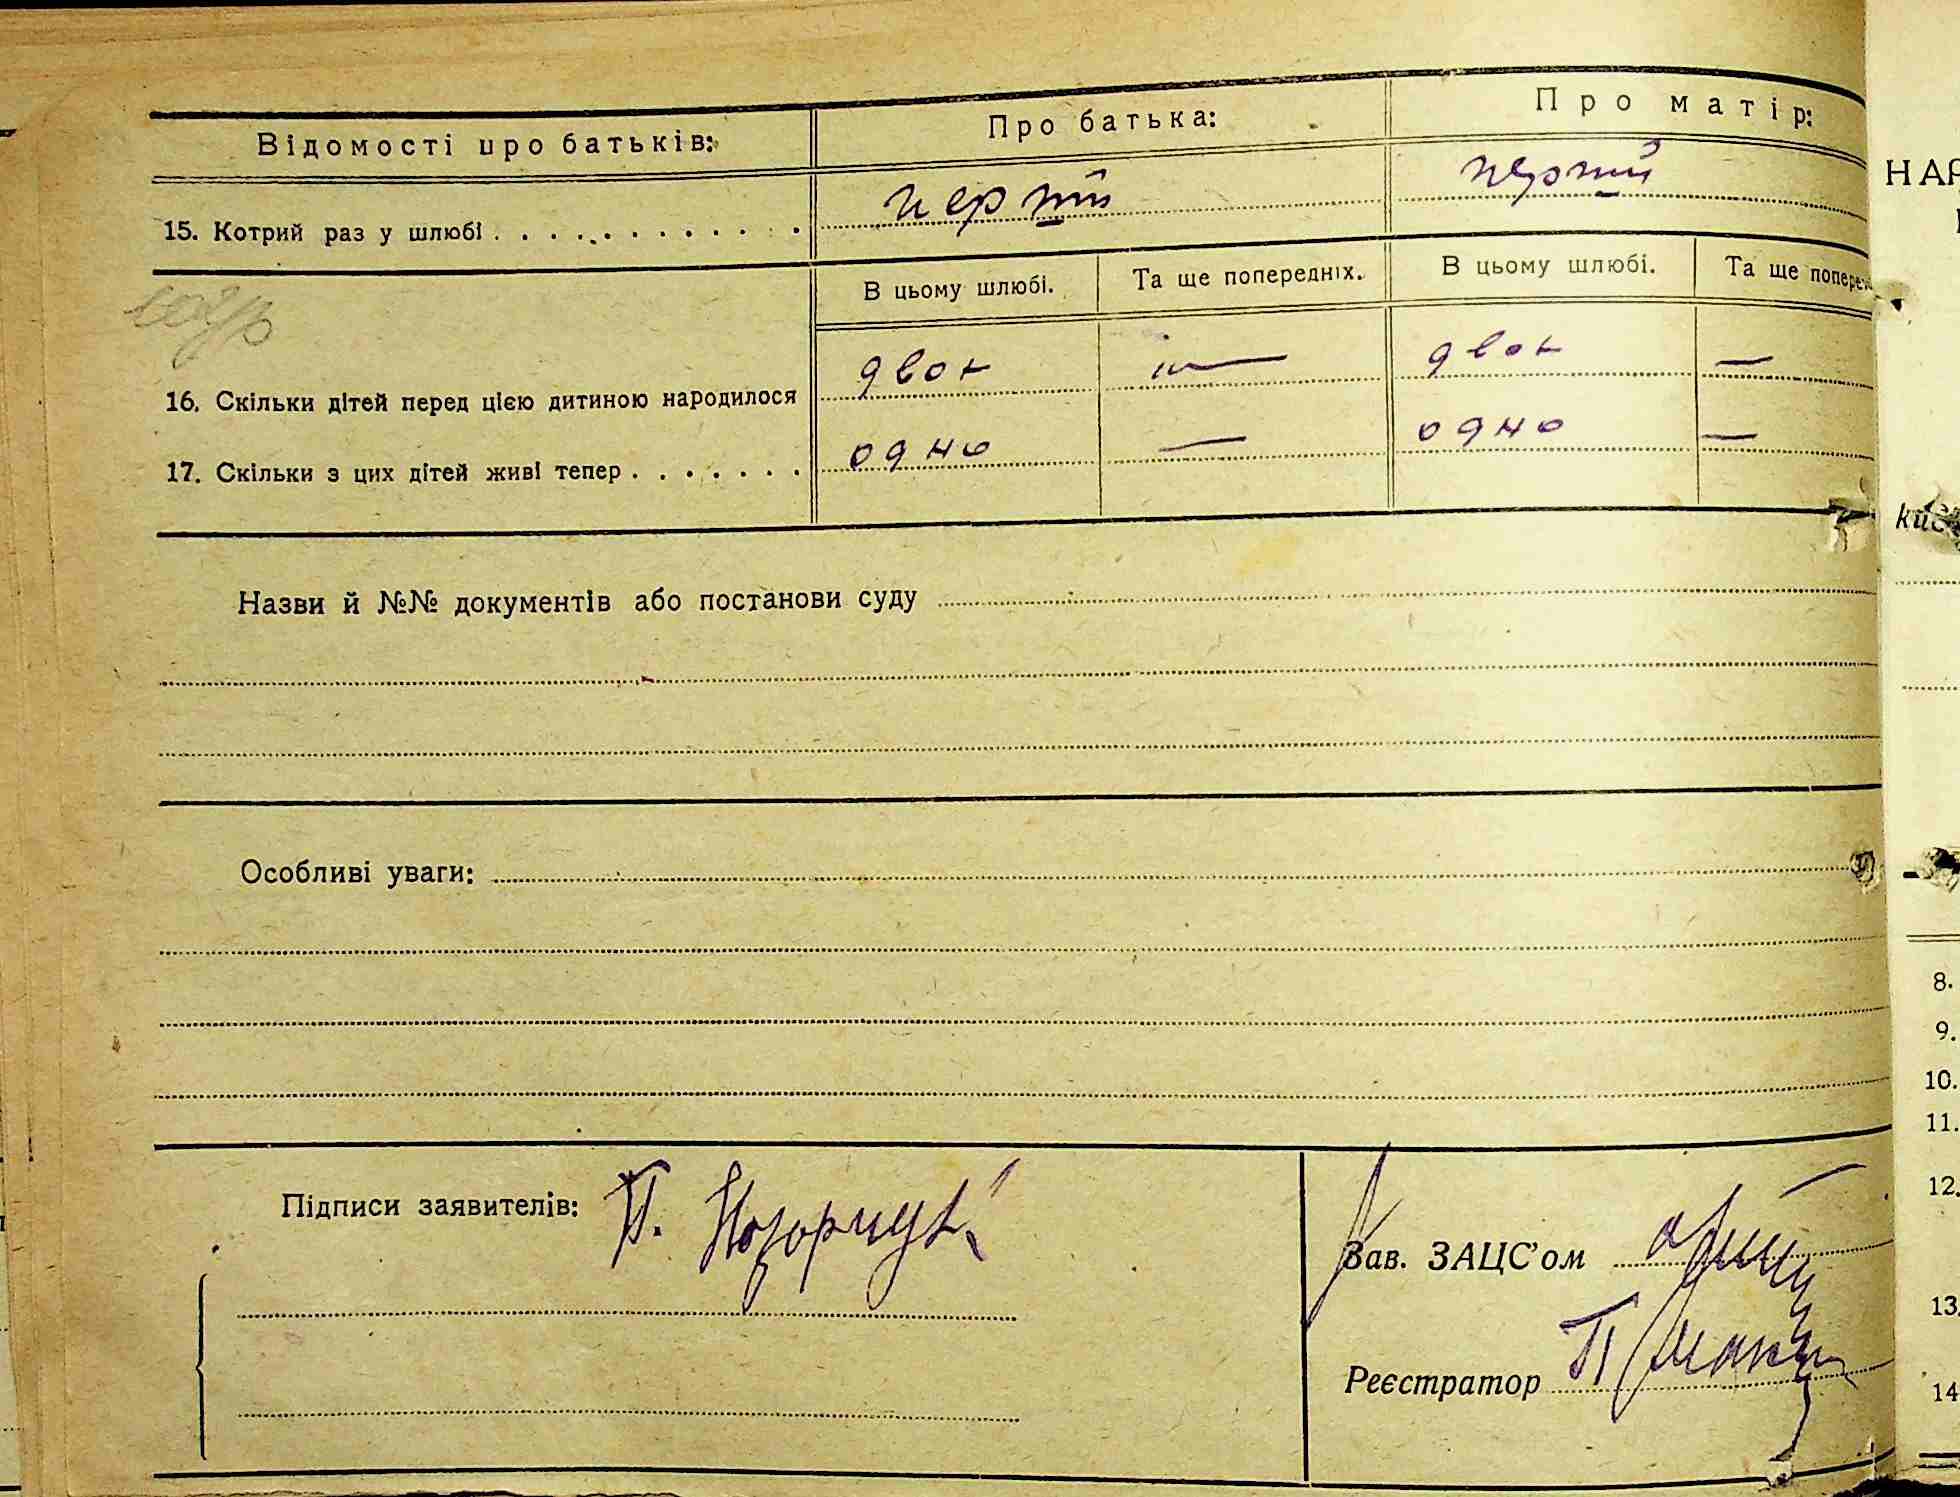 Відомості про батьків: Про батька: Про матір:
15. Котрий раз у шлюбі . . . . . . . . . . . . перший перший
В цьому шлюбі. Та ще попередніх. В цьому шлюбі. Та ще
16. Скільки дітей перед цією дитиною народилося двох — двох —
17. Скільки з цих дітей живі тепер . . . . . . . одно — одно —
Назви й №№ документів або постанови суду
Особливі уваги:
Підписи заявителів: П.
Зав. ЗАЦС'ом
Реєстратор П
8.
9.
10.
11.
12.
13.
14